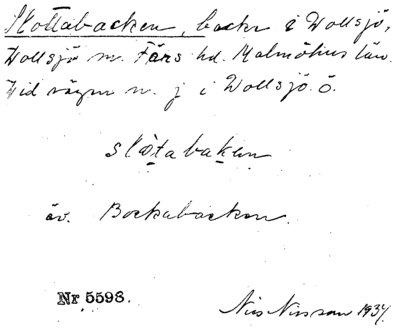 Slottabacken, backe i Wollsjö,
Wollsjö sn. Färs hd. Malmöhus län.
Vid vägen n. j i Wollsjö. ö.
slòtabaken
äv. Bockabacken.
Nr 5598.
Nils Nilsson 1934.